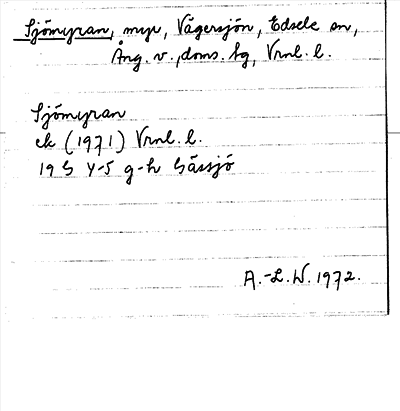 Sjömyran, myr, Vägersjön, Edsele sn,
Ång. v., doms. hg, Vrnl. l.
Sjömyran
ek (1971) Vrnl. l.
19 G 4-5 g-h Gåssjö
A.-L. W. 1972.